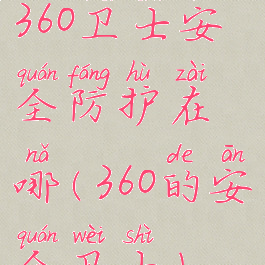 360卫士安
quán fáng hù zài
全防护在
nǎ de ān
哪(360的安
quán wèi shì
全卫士)